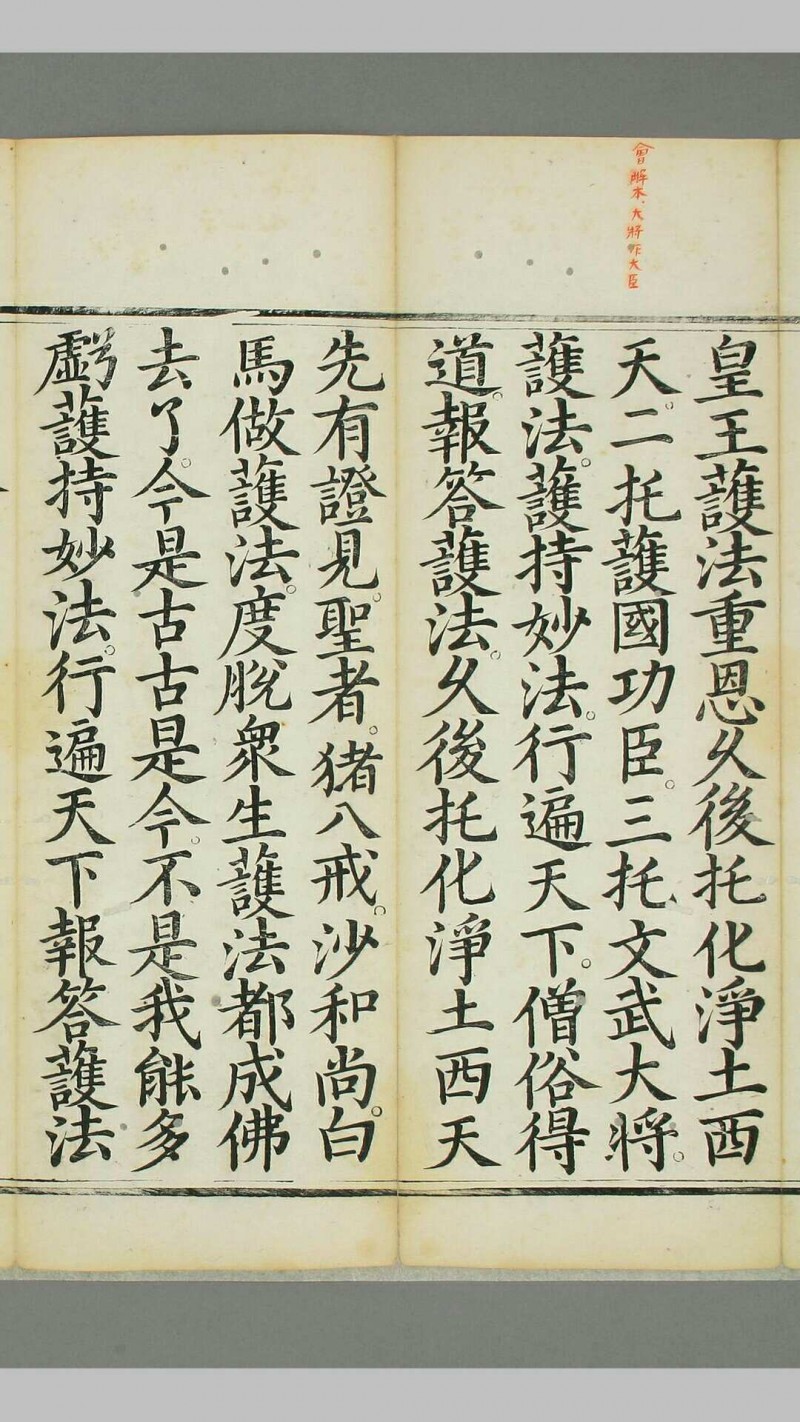 會解本大將作大臣
皇王䕶法重恩久後托化淨土西
天。二托䕶國功臣。三托文武大將。
䕶法。䕶持妙法。行遍天下。僧俗得
道。報答䕶法。久後托化淨土西天
先有證見。聖者。猪八戒。沙和尚。白
馬做䕶法。度脫衆生䕶法都成佛
去了。今是古古是今。不是我能多
虧䕶持妙法。行遍天下報答䕶法